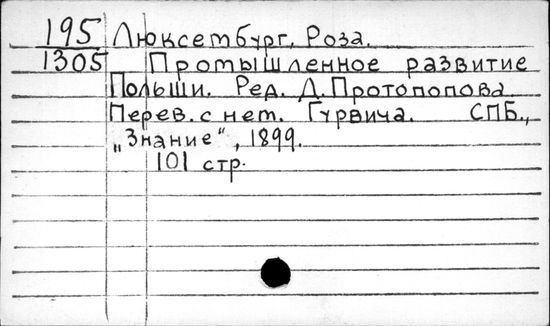 195 Люксембург, Роза.
1305 Промышленное развитие
Польши. Ред. Д. Протопопова.
Перев. с нем. Гурвича. СПБ.,
„Знание“, 1899.
101 стр.